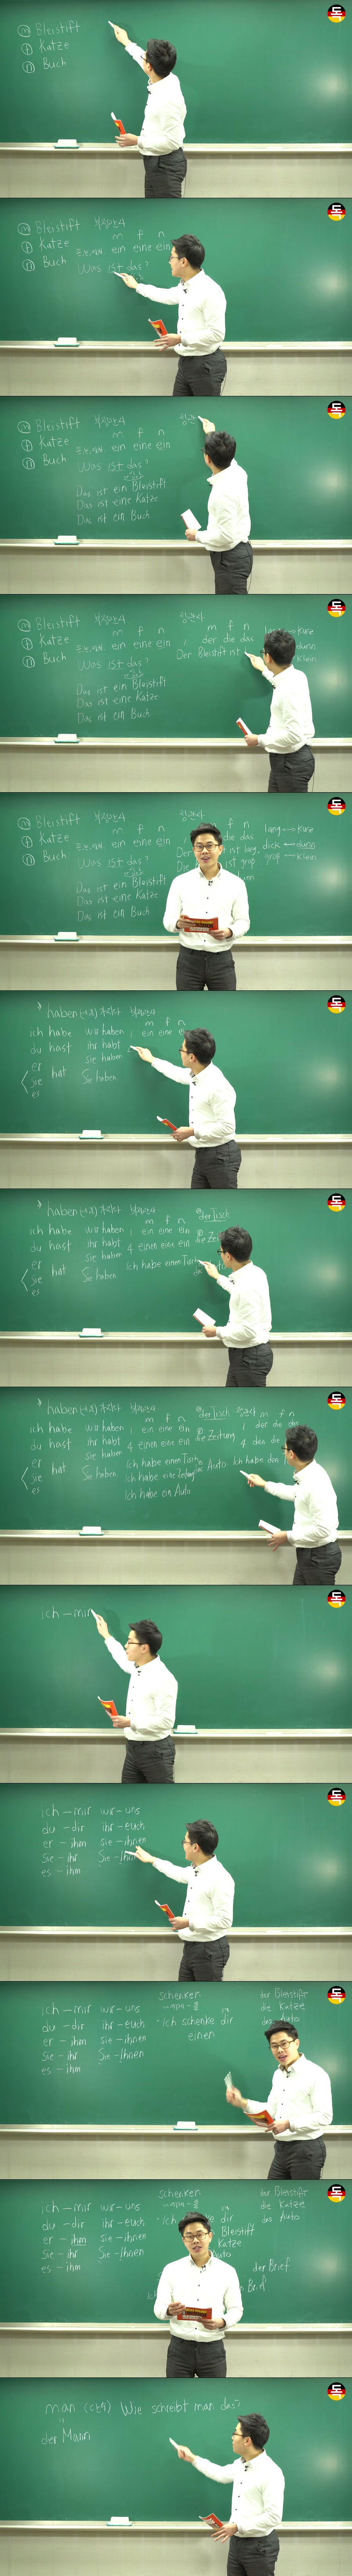 독
ⓜ Bleistift
ⓕ Katze
ⓝ Buch
독
ⓜ Bleistift 부정관사
ⓕ Katze m f n
ⓝ Buch ein eine ein
Was ist das?
독
ⓜ Bleistift 부정관사 정관
ⓕ Katze m f n
ⓝ Buch ein eine ein
Was ist das?
Das ist ein Bleistift
Das ist eine Katze
Das ist ein Buch
독
ⓜ Bleistift 부정관사 정관사
ⓕ Katze m f n m f n
ⓝ Buch ein eine ein 1 der die das
Was ist das? Der Bleistift ist
kurz
dünn
klein
Das ist ein Bleistift
Das ist eine Katze
Das ist ein Buch
독
ⓜ Bleistift 부정관사 정관사
ⓕ Katze m f n f n
ⓝ Buch ein eine ein die das
Was ist das? Der ist lang.
Die ist groß
lang ↔ kurz
dick ↔ dünn
groß ↔ klein
Das ist ein Bleistift
Das ist eine Katze
Das ist ein Buch
독
haben 부정관사
ich habe wir haben m f n
du hast ihr habt 1 ein eine
er sie haben
sie hat Sie haben
es
독
haben 부정관사 der Tisch
ich habe wir haben m f n
du hast ihr habt 1 ein eine ein
er sie haben 4 einen eine ein
sie hat Sie haben Ich habe einen Tisch
es
독
haben 부정관사 der Tisch 정관사 m f n
ich habe wir haben 1 ein eine ein die Zeitung 1 der die das
du hast ihr habt 4 einen eine ein 4 den die
er sie haben Ich habe einen Tisch Auto Ich habe den
sie hat Sie haben Ich habe eine Zeitung
es Ich habe ein Auto
독
ich – mir
독
ich – mir wir – uns
du – dir ihr – euch
er – ihm sie – ihnen
sie – ihr Sie – Ihnen
es – ihm
독
ich – mir wir – uns
du – dir ihr – euch
er – ihm sie – ihnen
sie – ihr Sie – Ihnen
es – ihm
schenken
Ich schenke dir
einen
der Bleistift
die Katze
das Auto
독
ich – mir wir – uns
du – dir ihr – euch
er – ihm sie – ihnen
sie – ihr Sie – Ihnen
es – ihm
schenken
Ich dir
Bleistift
Katze
Auto
der Bleistift
die Katze
das Auto
der Brief
Brief
독
man Wie schreibt man das?
der Mann